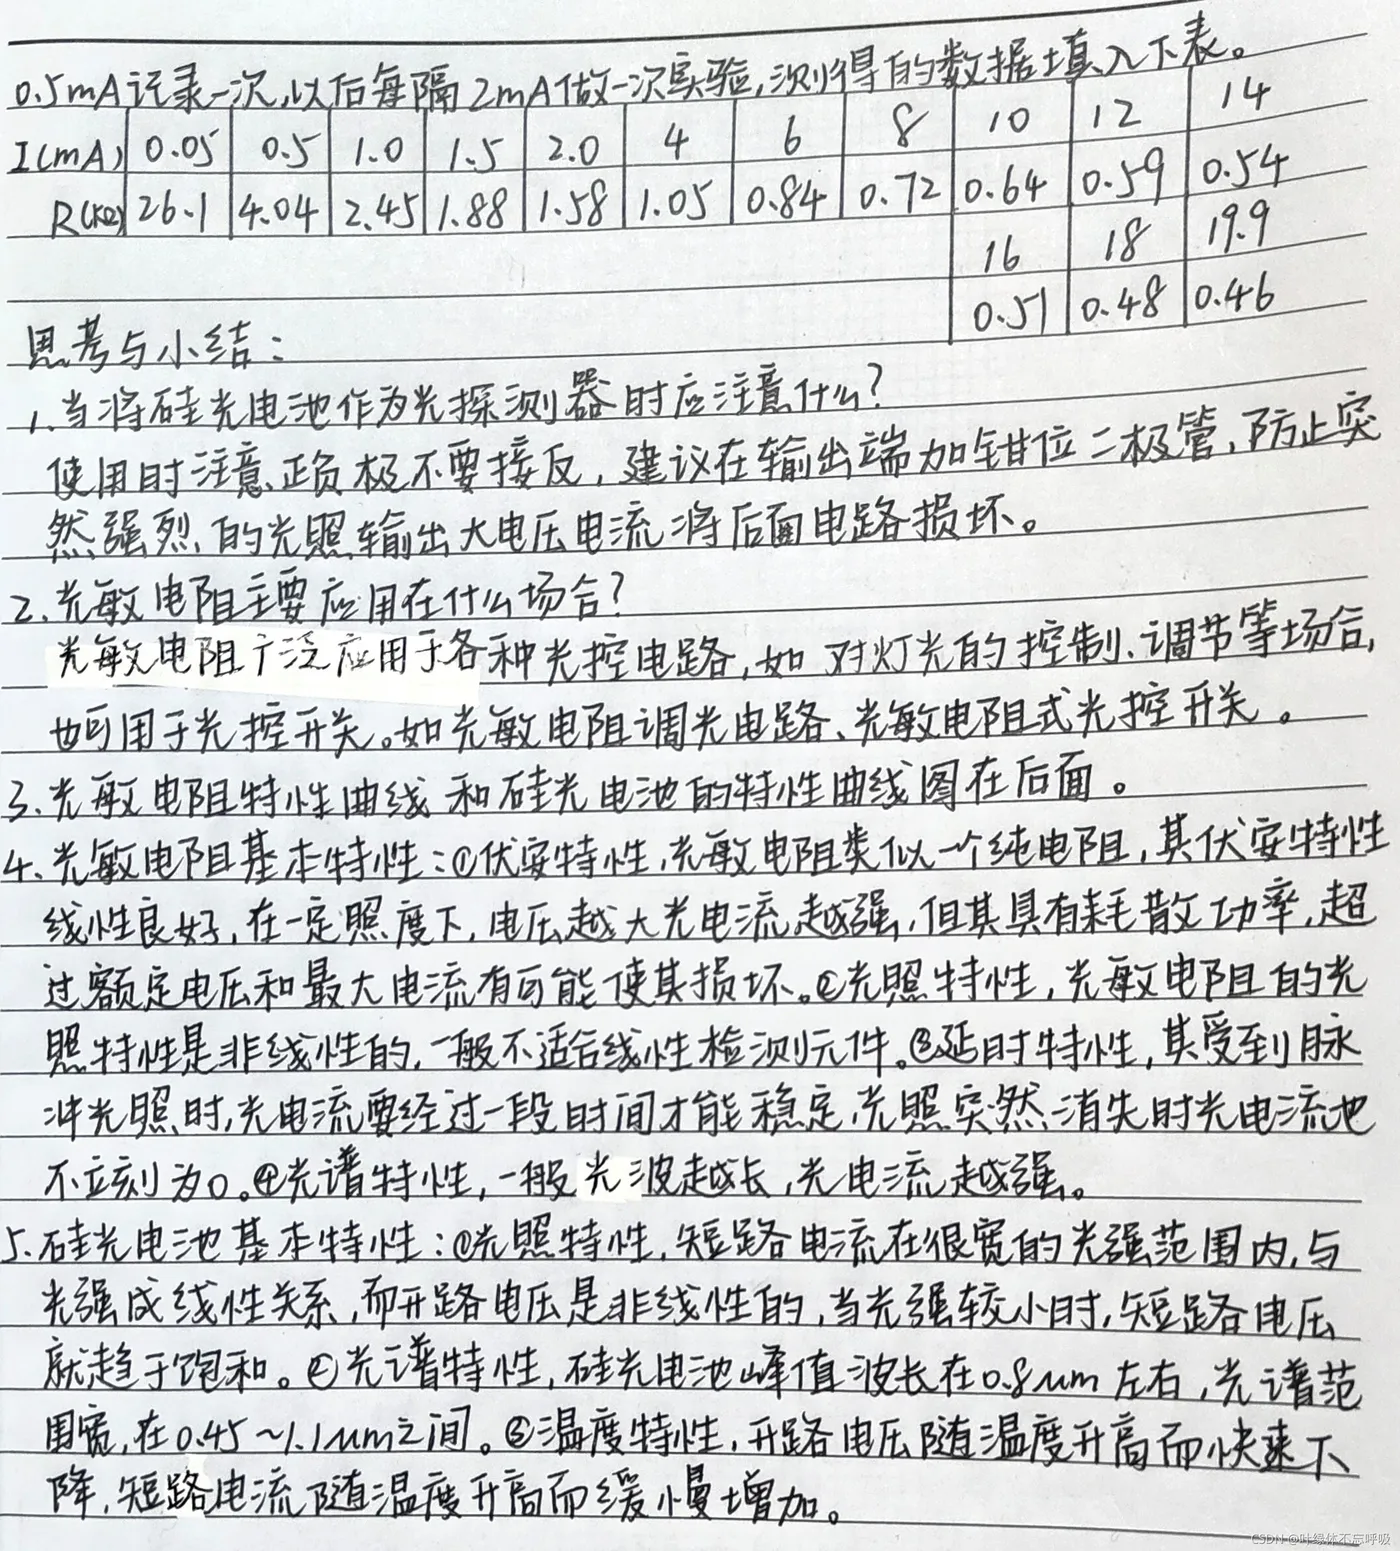 0.5mA记录一次,以后每隔2mA做一次实验,测得的数据填入下表。
I(mA) 0.05 0.5 1.0 1.5 2.0 4 6 8 10 12 14
R(KΩ) 26.1 4.04 2.45 1.88 1.58 1.05 0.84 0.72 0.64 0.59 0.54
16 18 19.9
0.51 0.48 0.46
思考与小结:
1.当将硅光电池作为光探测器时应注意什么?
使用时注意正负极不要接反,建议在输出端加钳位二极管,防止突
然强烈的光照输出大电压电流将后面电路损坏。
2.光敏电阻主要应用在什么场合?
光敏电阻广泛应用于各种光控电路,如对灯光的控制、调节等场合,
也可用于光控开关。如光敏电阻调光电路、光敏电阻式光控开关。
3.光敏电阻特性曲线和硅光电池的特性曲线图在后面。
4.光敏电阻基本特性:①伏安特性,光敏电阻类似一个纯电阻,其伏安特性
线性良好,在一定照度下,电压越大光电流越强,但其具有耗散功率,超
过额定电压和最大电流有可能使其损坏。②光照特性,光敏电阻的光
照特性是非线性的,一般不适合线性检测元件。③延时特性,其受到脉
冲光照时,光电流要经过一段时间才能稳定,光照突然消失时光电流也
不立刻为0。④光谱特性,一般光波越长,光电流越强。
5.硅光电池基本特性:①光照特性,短路电流在很宽的光强范围内,与
光强成线性关系,而开路电压是非线性的,当光强较小时,短路电压
就趋于饱和。②光谱特性,硅光电池峰值波长在0.8um左右,光谱范
围宽,在0.45~1.1um之间。③温度特性,开路电压随温度升高而快速下
降,短路电流随温度升高而缓慢增加。
CSDN @叶绿体不忘呼吸